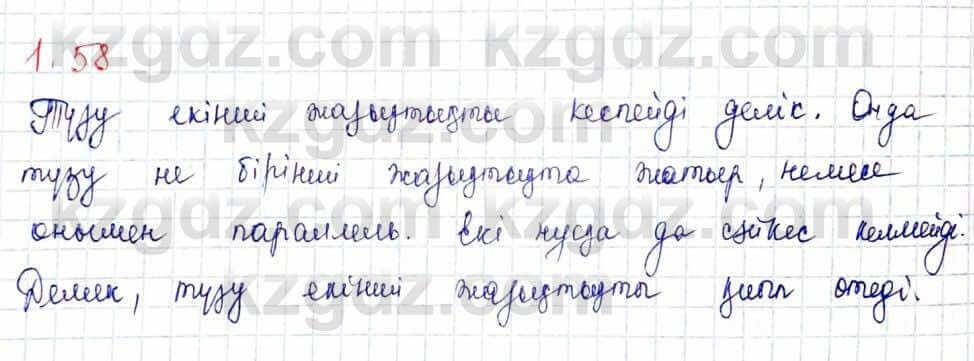 1.58
Түзу екінші жазықтықты кеспейді делік. Онда
түзу не бірінші жазықтықта жатыр, немесе
онымен параллель. Екі нұсқа да сәйкес келмейді.
Демек, түзу екінші жазықтықты қиып өтеді.
kzgdz.com kzgdz.com
kzgdz.com kzgdz.com
kzgdz.com kzgdz.com
kzgdz.com kzgdz.com